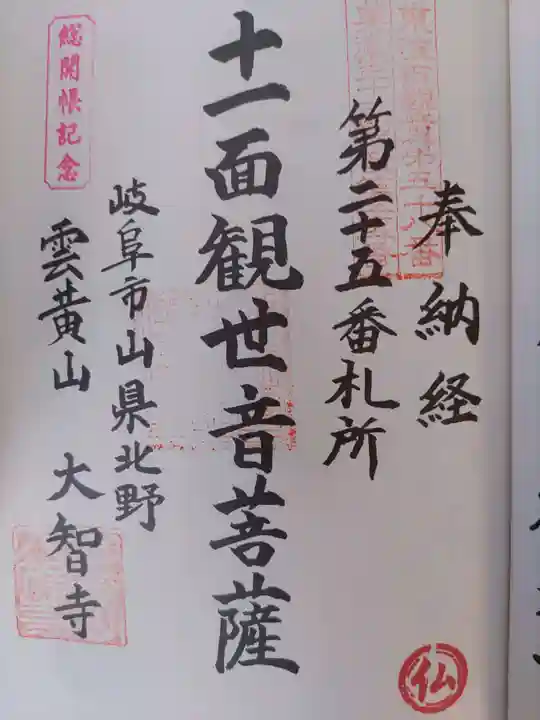 奉納経
第二十五番札所
十一面観世音菩薩
岐阜市山県北野
雲黄山 大智寺
総開帳記念
仏